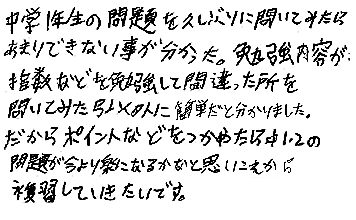 中学1年生の問題を久しぶりに聞いてみたら
あまりできない事が分かった。勉強内容が
指数などを勉強して間違った所を
聞いてみたら 簡単だと分かりました。
だからポイントなどをつかめたら中1,2の
問題が今より楽になるかなと思いこれから
複習していきたいです。